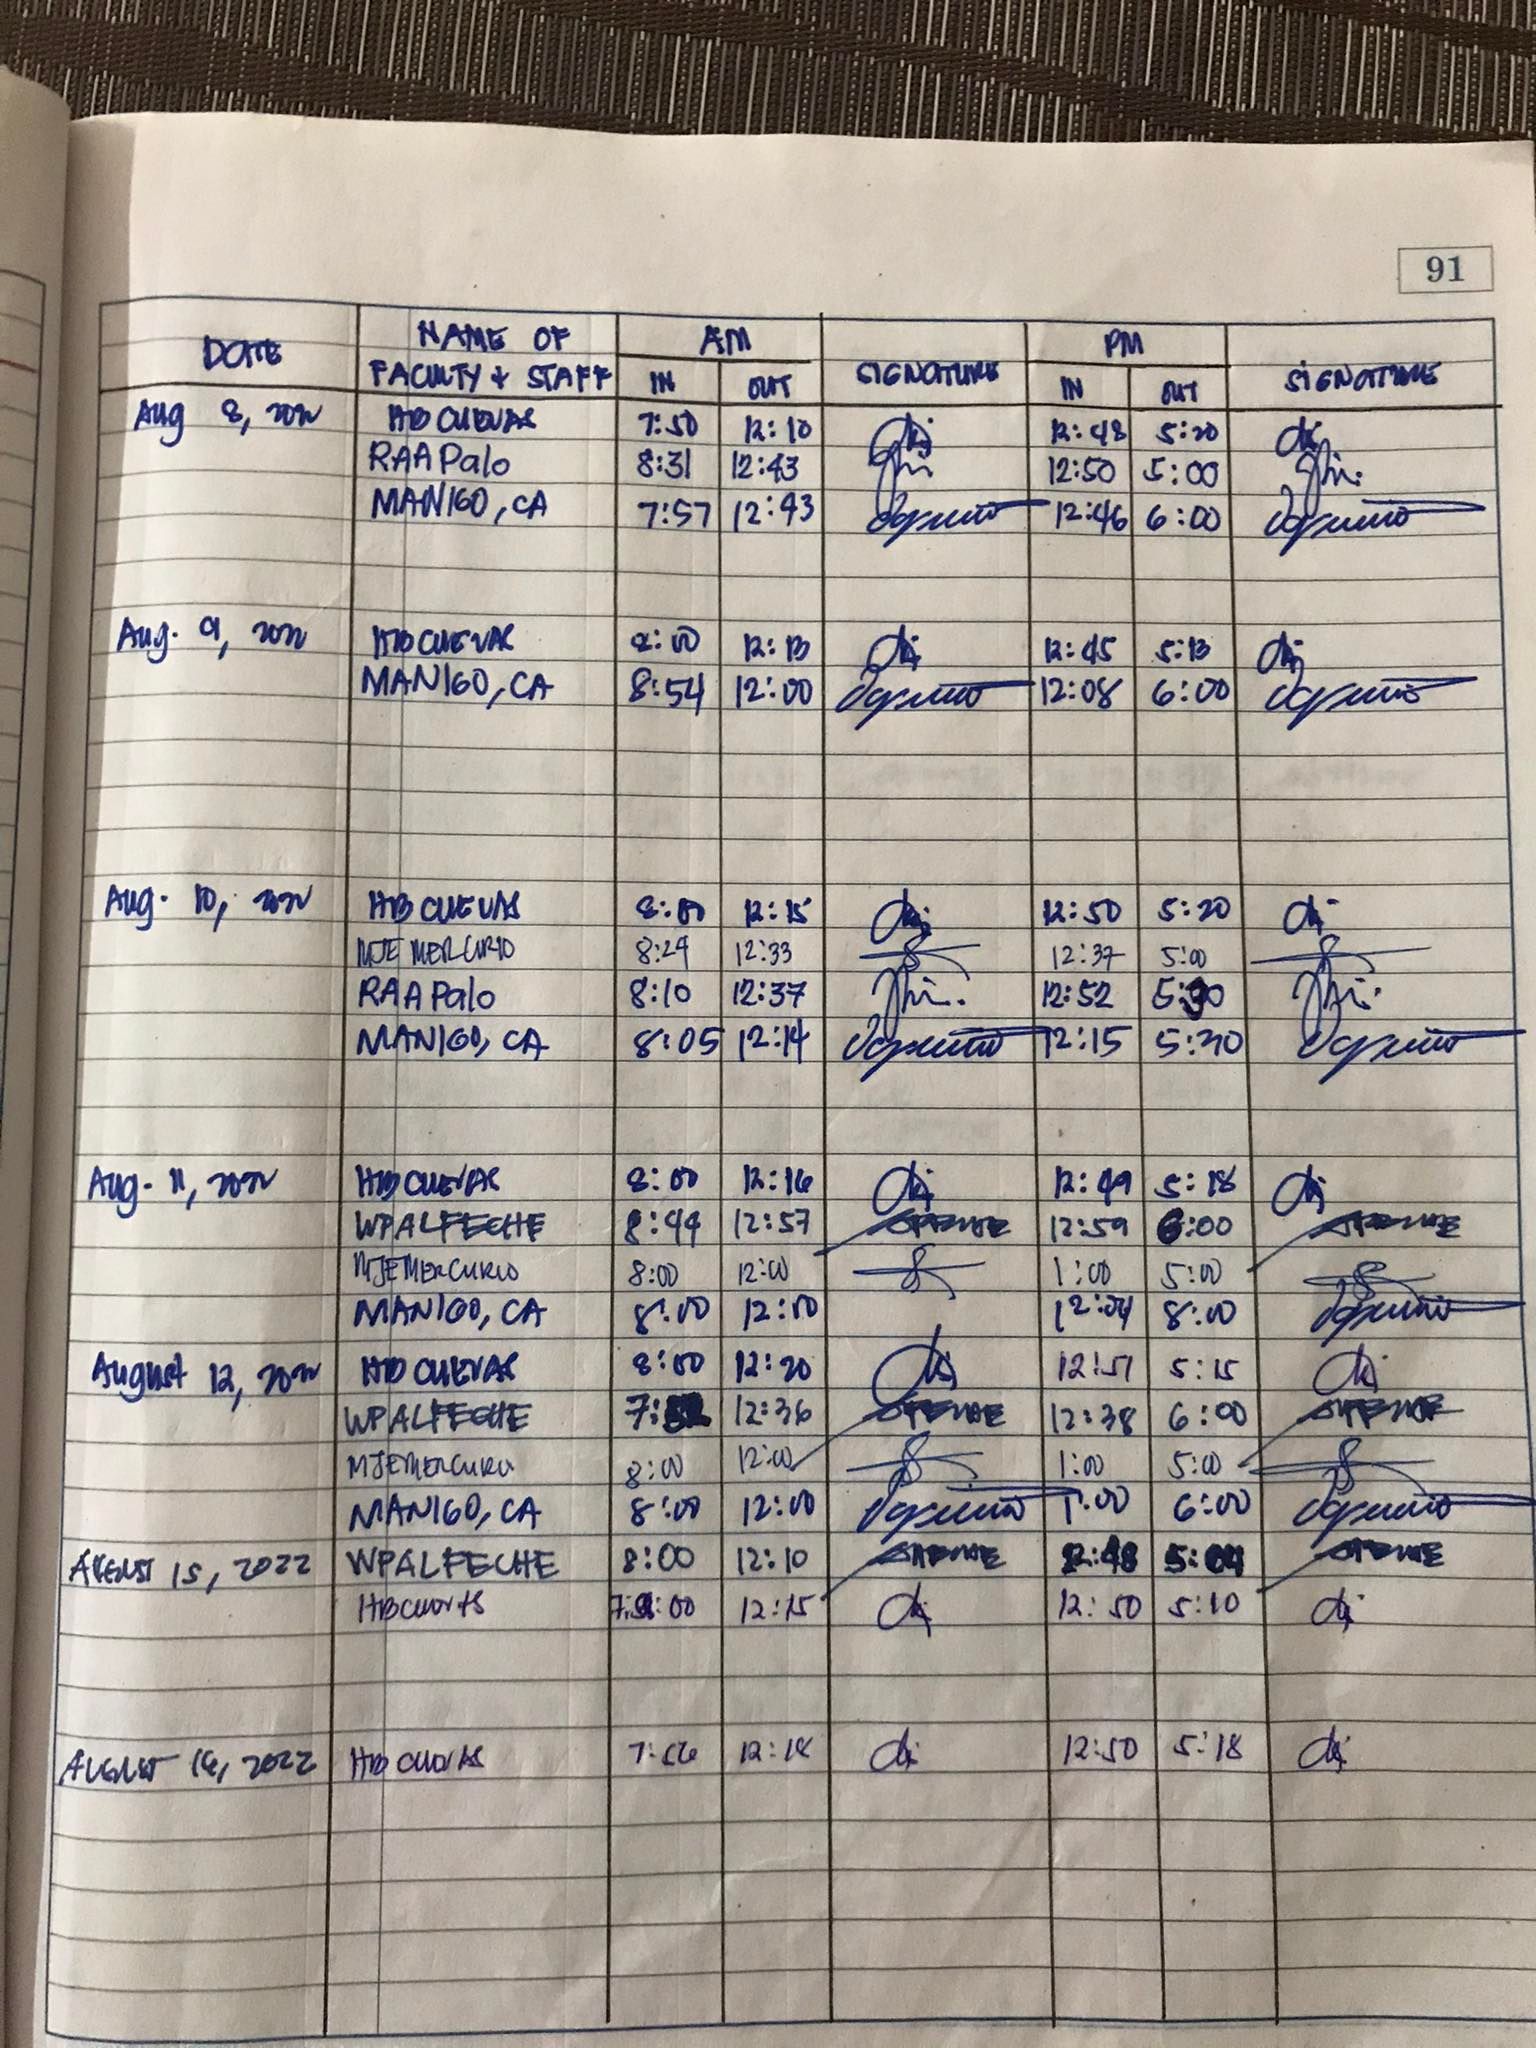 91
DATE NAME OF FACULTY & STAFF AM IN OUT SIGNATURE PM IN OUT SIGNATURE
Aug 8, 2022 HB CUEVAS 7:50 12:10 12:48 5:20
RAA Palo 8:31 12:43 12:50 5:00
MANIGO, CA 7:57 12:43 12:46 6:00
Aug. 9, 2022 HB CUEVAS 8:00 12:13 12:45 5:13
MANIGO, CA 8:54 12:00 12:08 6:00
Aug. 10, 2022 HB CUEVAS 8:00 12:15 12:50 5:20
MJE MERCURIO 8:29 12:33 12:37 5:00
RAA Palo 8:10 12:37 12:52 5:30
MANIGO, CA 8:05 12:14 12:15 5:30
Aug. 11, 2022 HB CUEVAS 8:00 12:16 12:49 5:18
WPALFECHE 8:44 12:57 12:59 6:00
MJEMERCURIO 8:00 12:00 1:00 5:00
MANIGO, CA 8:00 12:00 12:04 8:00
August 12, 2022 HB CUEVAS 8:00 12:20 12:51 5:15
WPALFECHE 12:36 12:38 6:00
MJEMERCURIO 8:00 12:00 1:00 5:00
MANIGO, CA 8:00 12:00 1:00 6:00
AUGUST 15, 2022 WPALFECHE 8:00 12:10 12:48 5:04
HB CUEVAS 12:15 12:50 5:10
AUGUST 16, 2022 HB CUEVAS 7:56 12:18 12:50 5:18